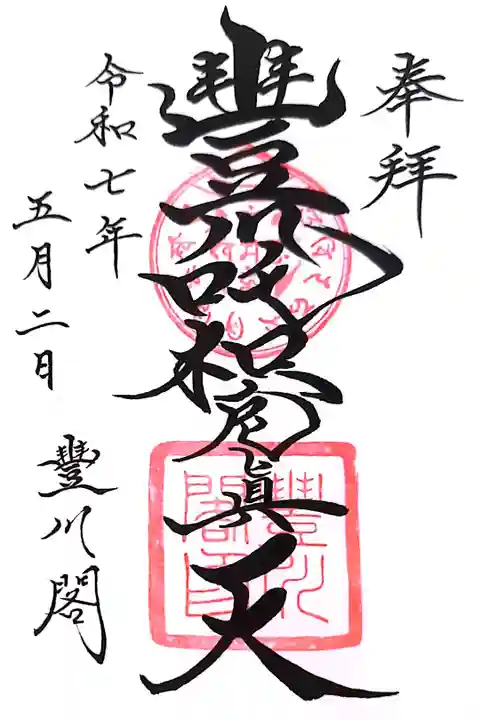 奉拝
豐川吒枳尼眞天
令和七年
五月二日
豐川閣
豐川
閣印